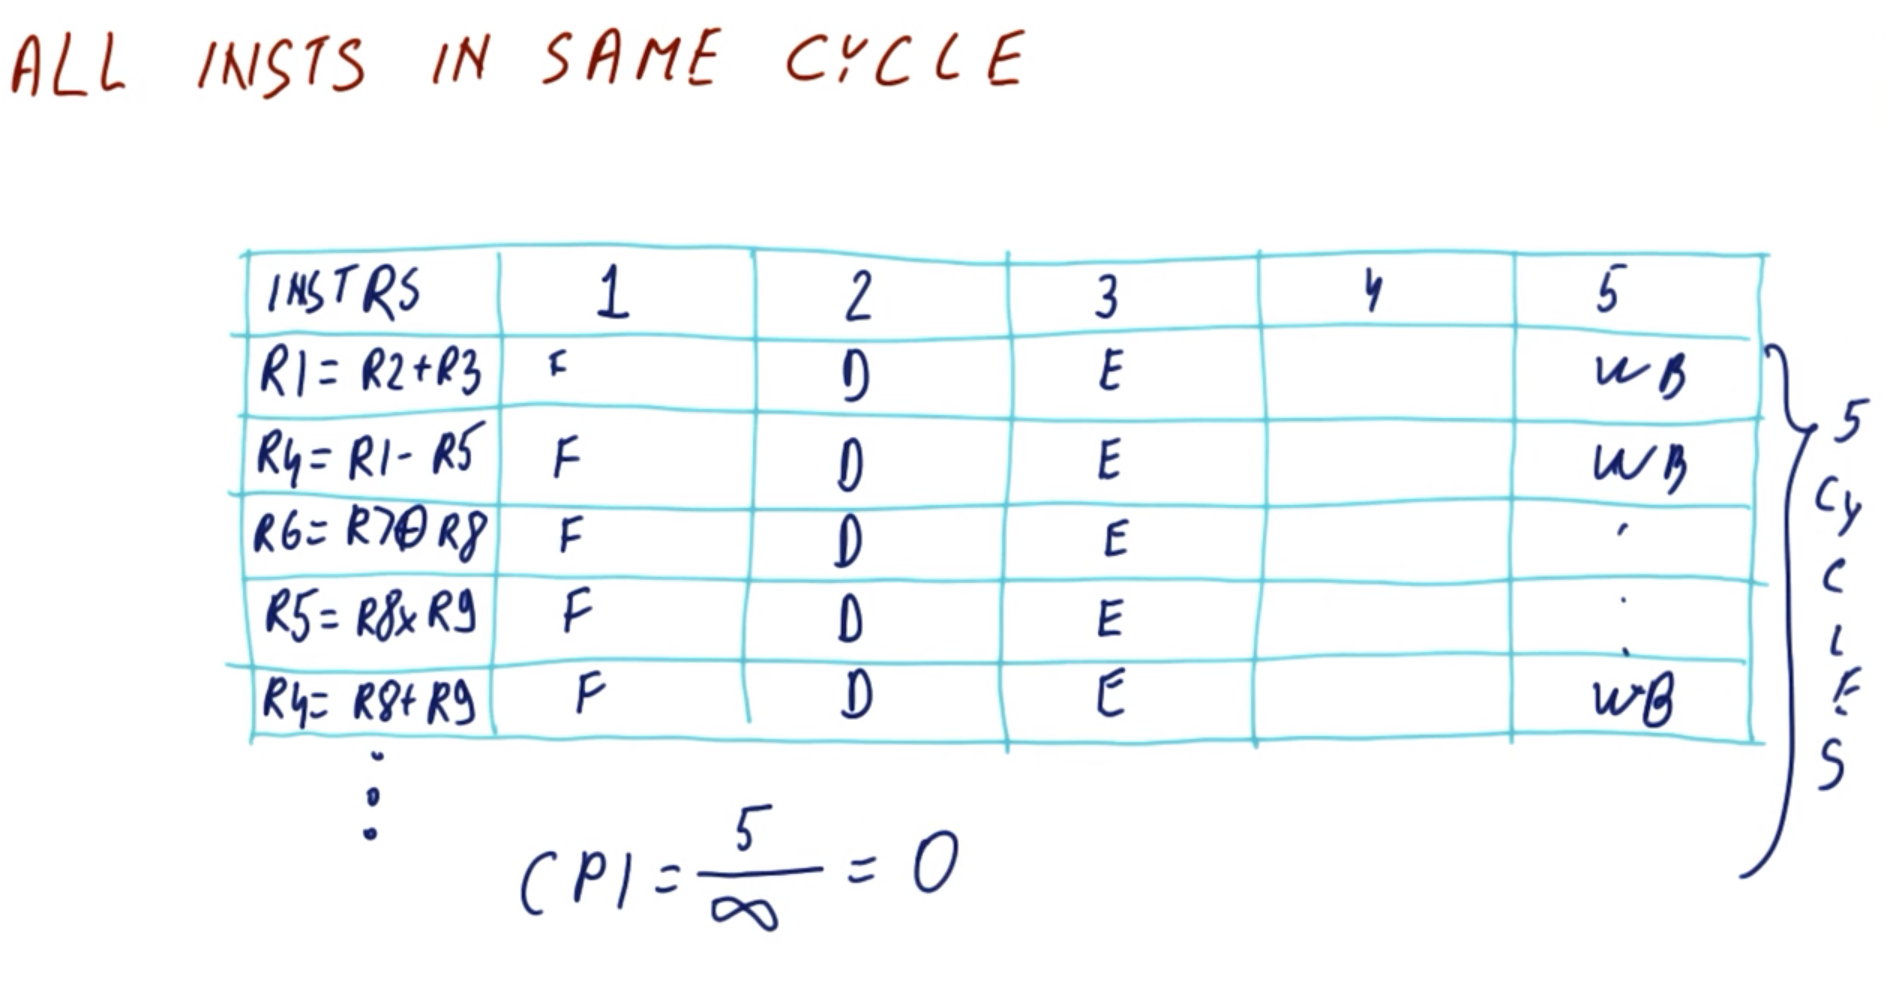 ALL INSTS IN SAME CYCLE
INSTRS 1 2 3 4 5
R1 = R2+R3 F D E WB
R4 = R1 - R5 F D E WB
R6 = R7⊕R8 F D E .
R5 = R8x R9 F D E :
R4 = R8+ R9 F D E WB
⋮
5 CYCLES
CPI = 5/∞ = 0